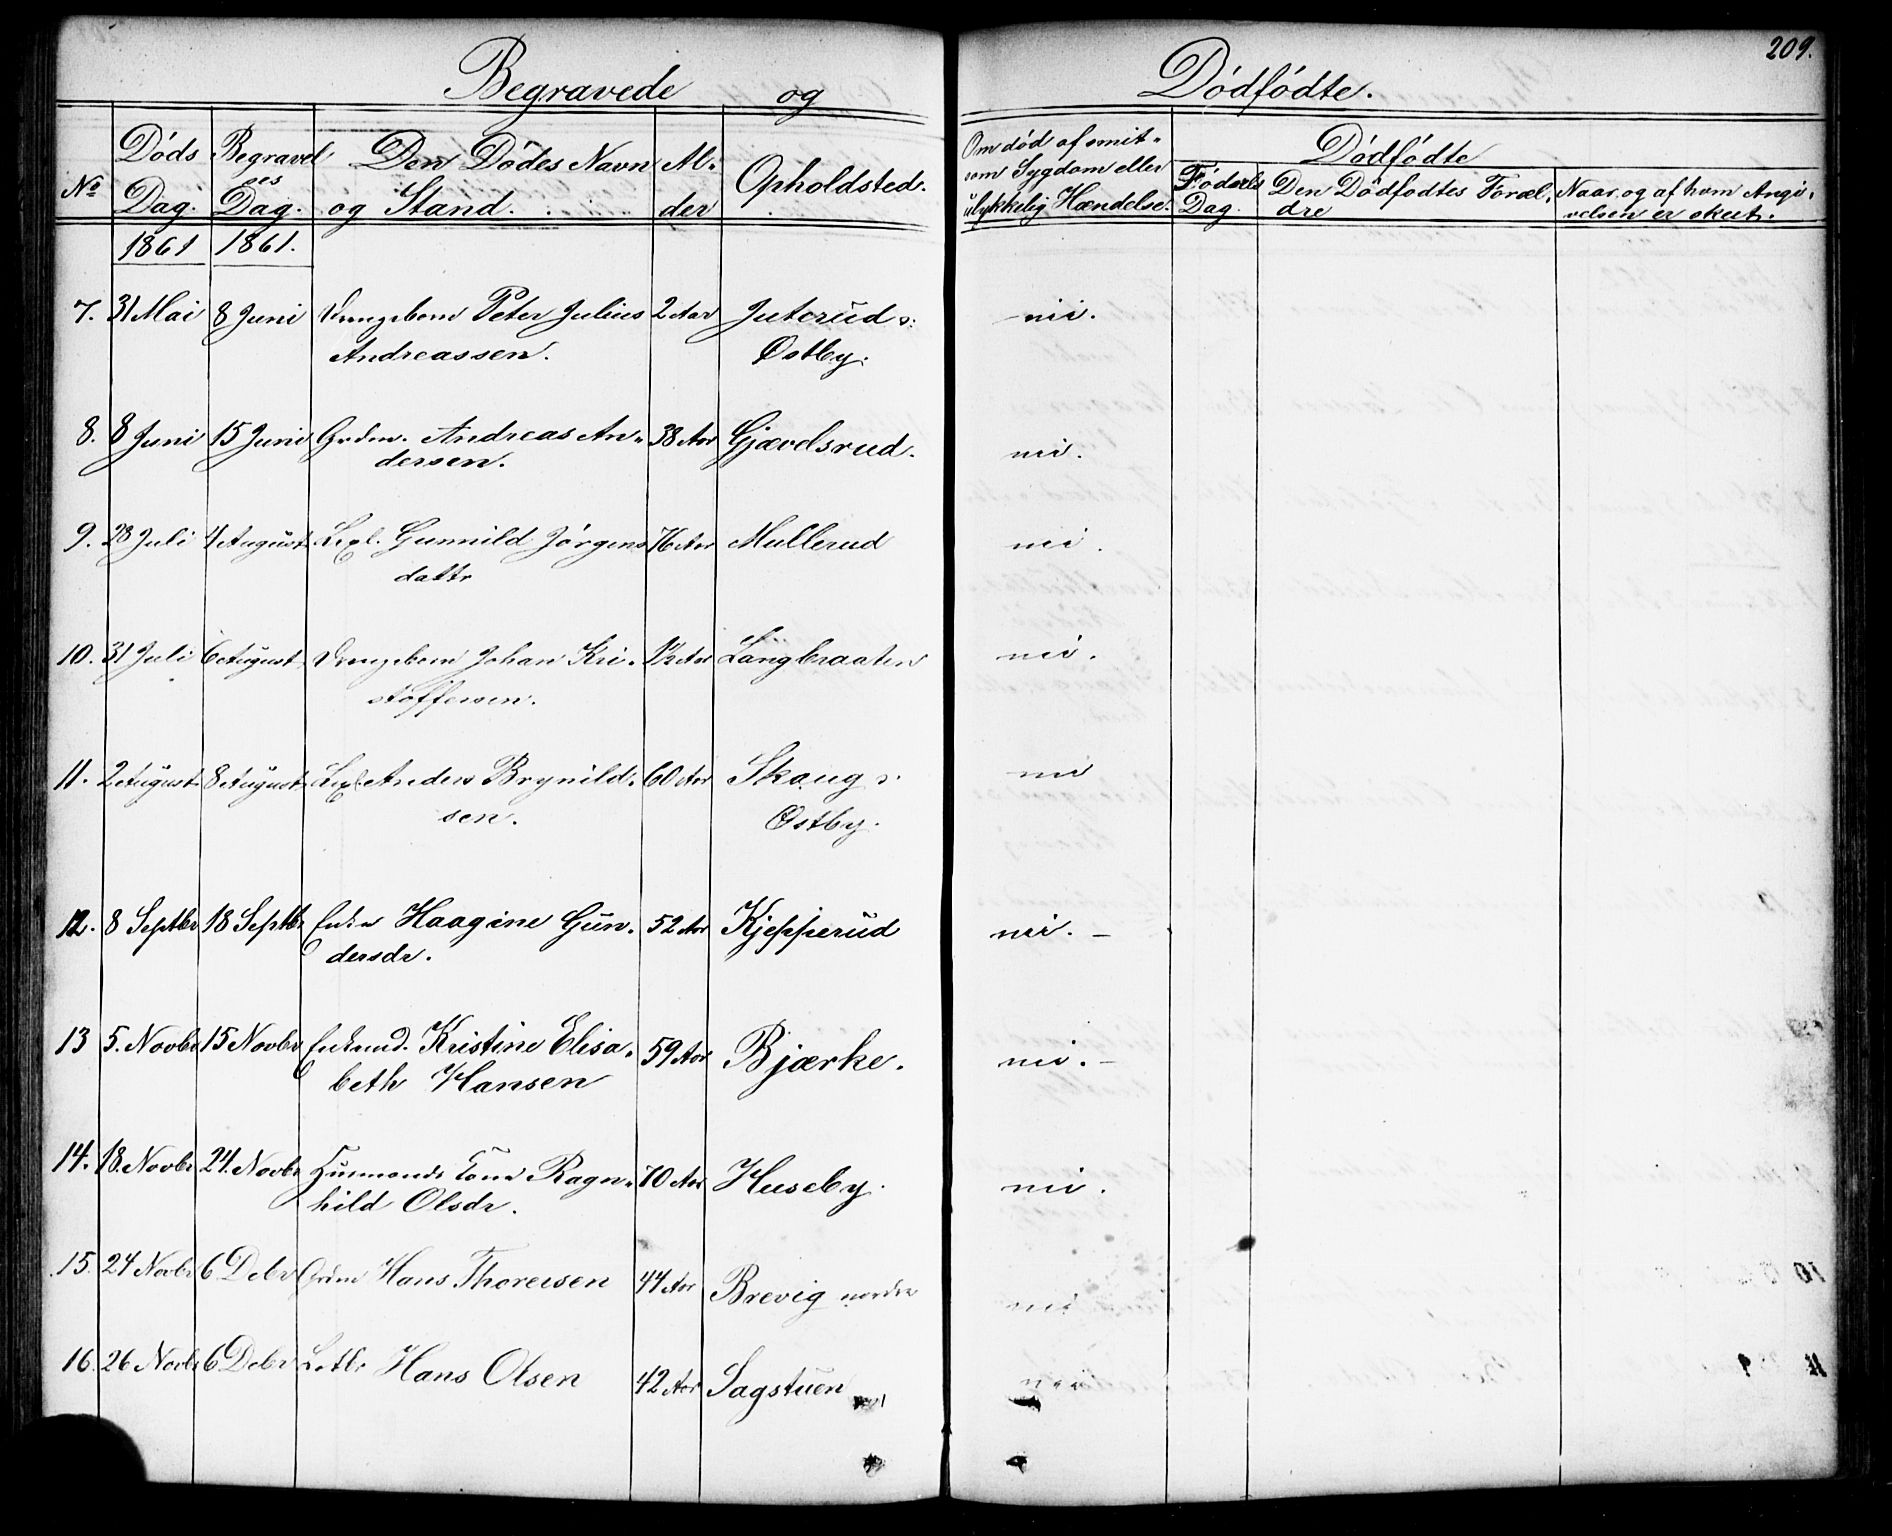 209.
Begravede og Dødfødte.
No
Døds Dag.
Begravelses Dag.
Den Dødes Navn og Stand.
Alder
Opholdsted.
Om død af smitsom Sygdom eller ulykkelig Hændelse.
Dødfødte
Fødsels Dag
Den Dødfødtes Forældre
Naar og af hvem Angivelsen er skeet.
1861 1861.
7. 31 Mai 8 Juni Drengebarn Peter Julius 2 Aar Juterud
Andreassen. Østby.
nei.
8. 8 Juni 15 Juni Grdm. Andreas An- 38 Aar Gjævelsrud.
dersen.
nei.
9. 28 Juli 4 August Gunnild Jørgens 76 Aar Mullerud
dattr
nei.
10. 31 Juli 6 August Drengebarn Johan Kri- 1½ Aar Langbraaten
stoffersen.
nei.
11. 2 August 8 August Anders Brynild- 60 Aar Skaug
sen. Østby.
nei
12. 8 Septbr 18 Septbr Enke Haagine Gun- 52 Aar Kjepperud
dersdr.
nei. –
13 5. Novbr 15 Novbr Kristine Elisa- 59 Aar Bjærke.
beth Hansen
nei. –
14. 18. Novbr 24. Novbr Husmands Kone Ragn- 70 Aar Huseby.
hild Olsdr.
nei.
15. 24 Novbr 6 Debr Grdm Hans Thoresen 44 Aar Brevig nordre
nei
16. 26 Novbr 6 Debr Hans Olsen 42 Aar Sagstuen
nei